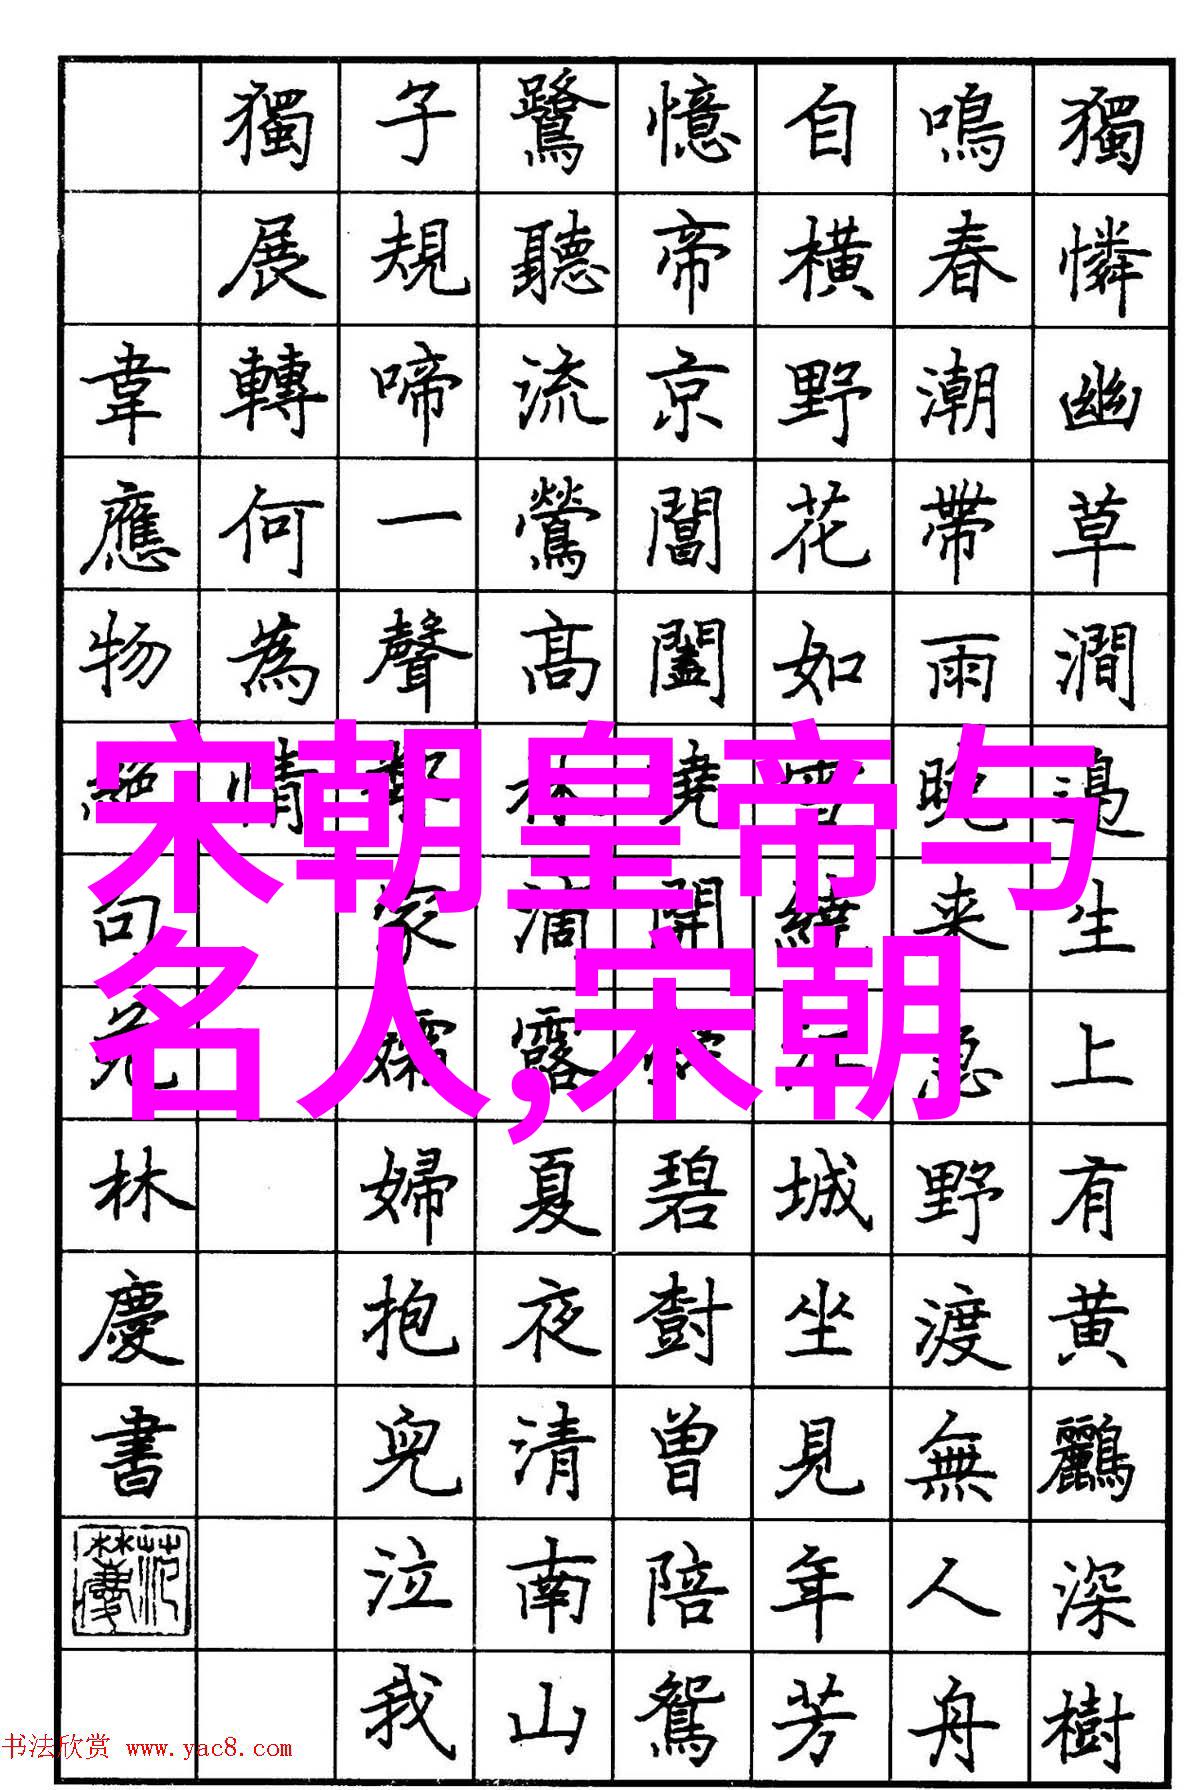 獨憐幽草澗邊生上有黃鸝深樹
鳴春潮帶雨晚来急野渡無人舟
自橫野花如雪繞江城坐見年芳
憶帝京閶闔曉開凝碧樹曾陪鴛
鷺聽流鶯高林滴露夏夜清南山
子規啼一聲鄰家孀婦抱兒泣我
獨展轉何為情
韋應物絕句范林慶書
宋朝皇帝与
名人,宋朝
书法欣赏 www.yac8.com